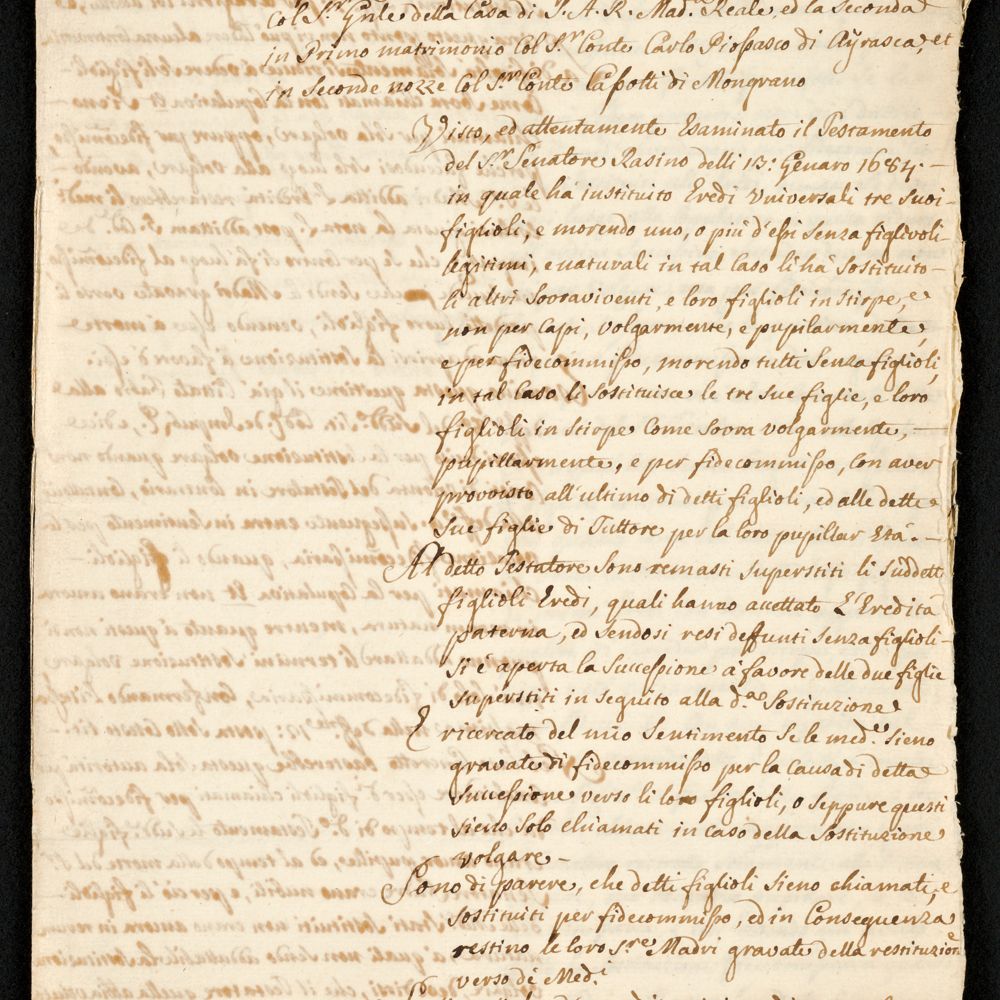 Col S.r Gnle della Casa di S. A. R. Mad.a Reale, ed la Seconda
in Primo matrimonio Col S.r Conte Carlo Piossasco di Ayrasca, et
in Seconde nozze Col S.r Conte Capotti di Mongrano
Visto, ed attentamente Esaminato il Testamento
del S.r Senatore Rasino delli 13: Genaro 1684. –
in quale hà instituito Eredi Universali tre suoi –
figlioli, e morendo uno, o più d'essi senza figlivoli –
legitimi, e naturali in tal Caso li hà sostituito –
li altri Sovraviventi, e loro figlioli in stirpe, e
non per Capi, volgarmente, e pupilarmente,
e per fidecommisso, morendo tutti Senza figlioli,
in tal Caso li sostituisce le tre sue figlie, e loro
figlioli in stirpe Come sovra volgarmente, –
pupillarmente, e per fidecommisso, Con aver
provvisto all'ultimo di detti figlioli, ed alle dette
sue figlie di Tuttore per la loro pupillar Età. –
Al detto Testatore sono remasti superstiti li suddetti
figlioli Eredi, quali hanno accettato L'Eredità
paterna, ed sendosi resi deffunti senza figlioli –
si è aperta la Successione à favore delle due figlie
superstiti in seguito alla d.a Sostituzione
E ricercato del mio Sentimento Se le med.e sieno
gravate di fidecommisso per la Causa di detta
Successione verso li loro figlioli, o seppure questi
sieno solo chiamati in caso della Sostituzione
volgare –
Sono di parere, che detti figlioli sieno chiamati, e
sostituiti per fidecommisso, ed in Conseguenza
restino le loro S.re Madri gravate della restituzione
verso di Med.i